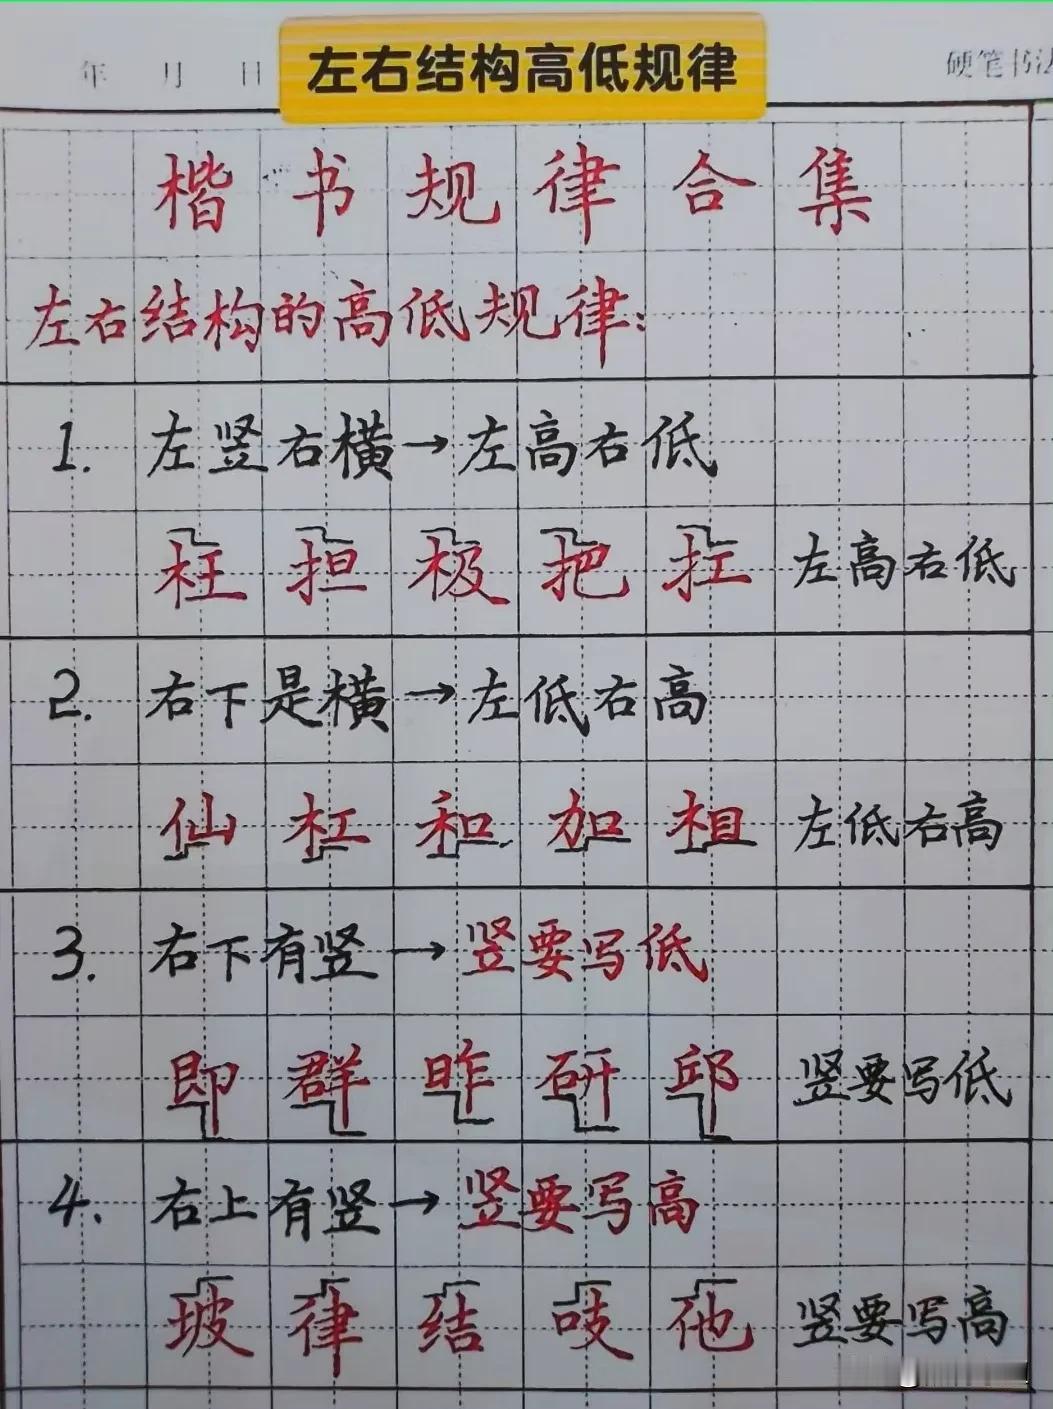 左右结构高低规律
年 月 日 硬笔书法
楷书规律合集
左右结构的高低规律:
1. 左竖右横→左高右低
枉 担 极 把 扛 左高右低
2. 右下是横→左低右高
仙 杠 和 加 相 左低右高
3. 右下有竖→竖要写低
即 群 昨 研 邱 竖要写低
4. 右上有竖→竖要写高
坡 律 结 吱 他 竖要写高